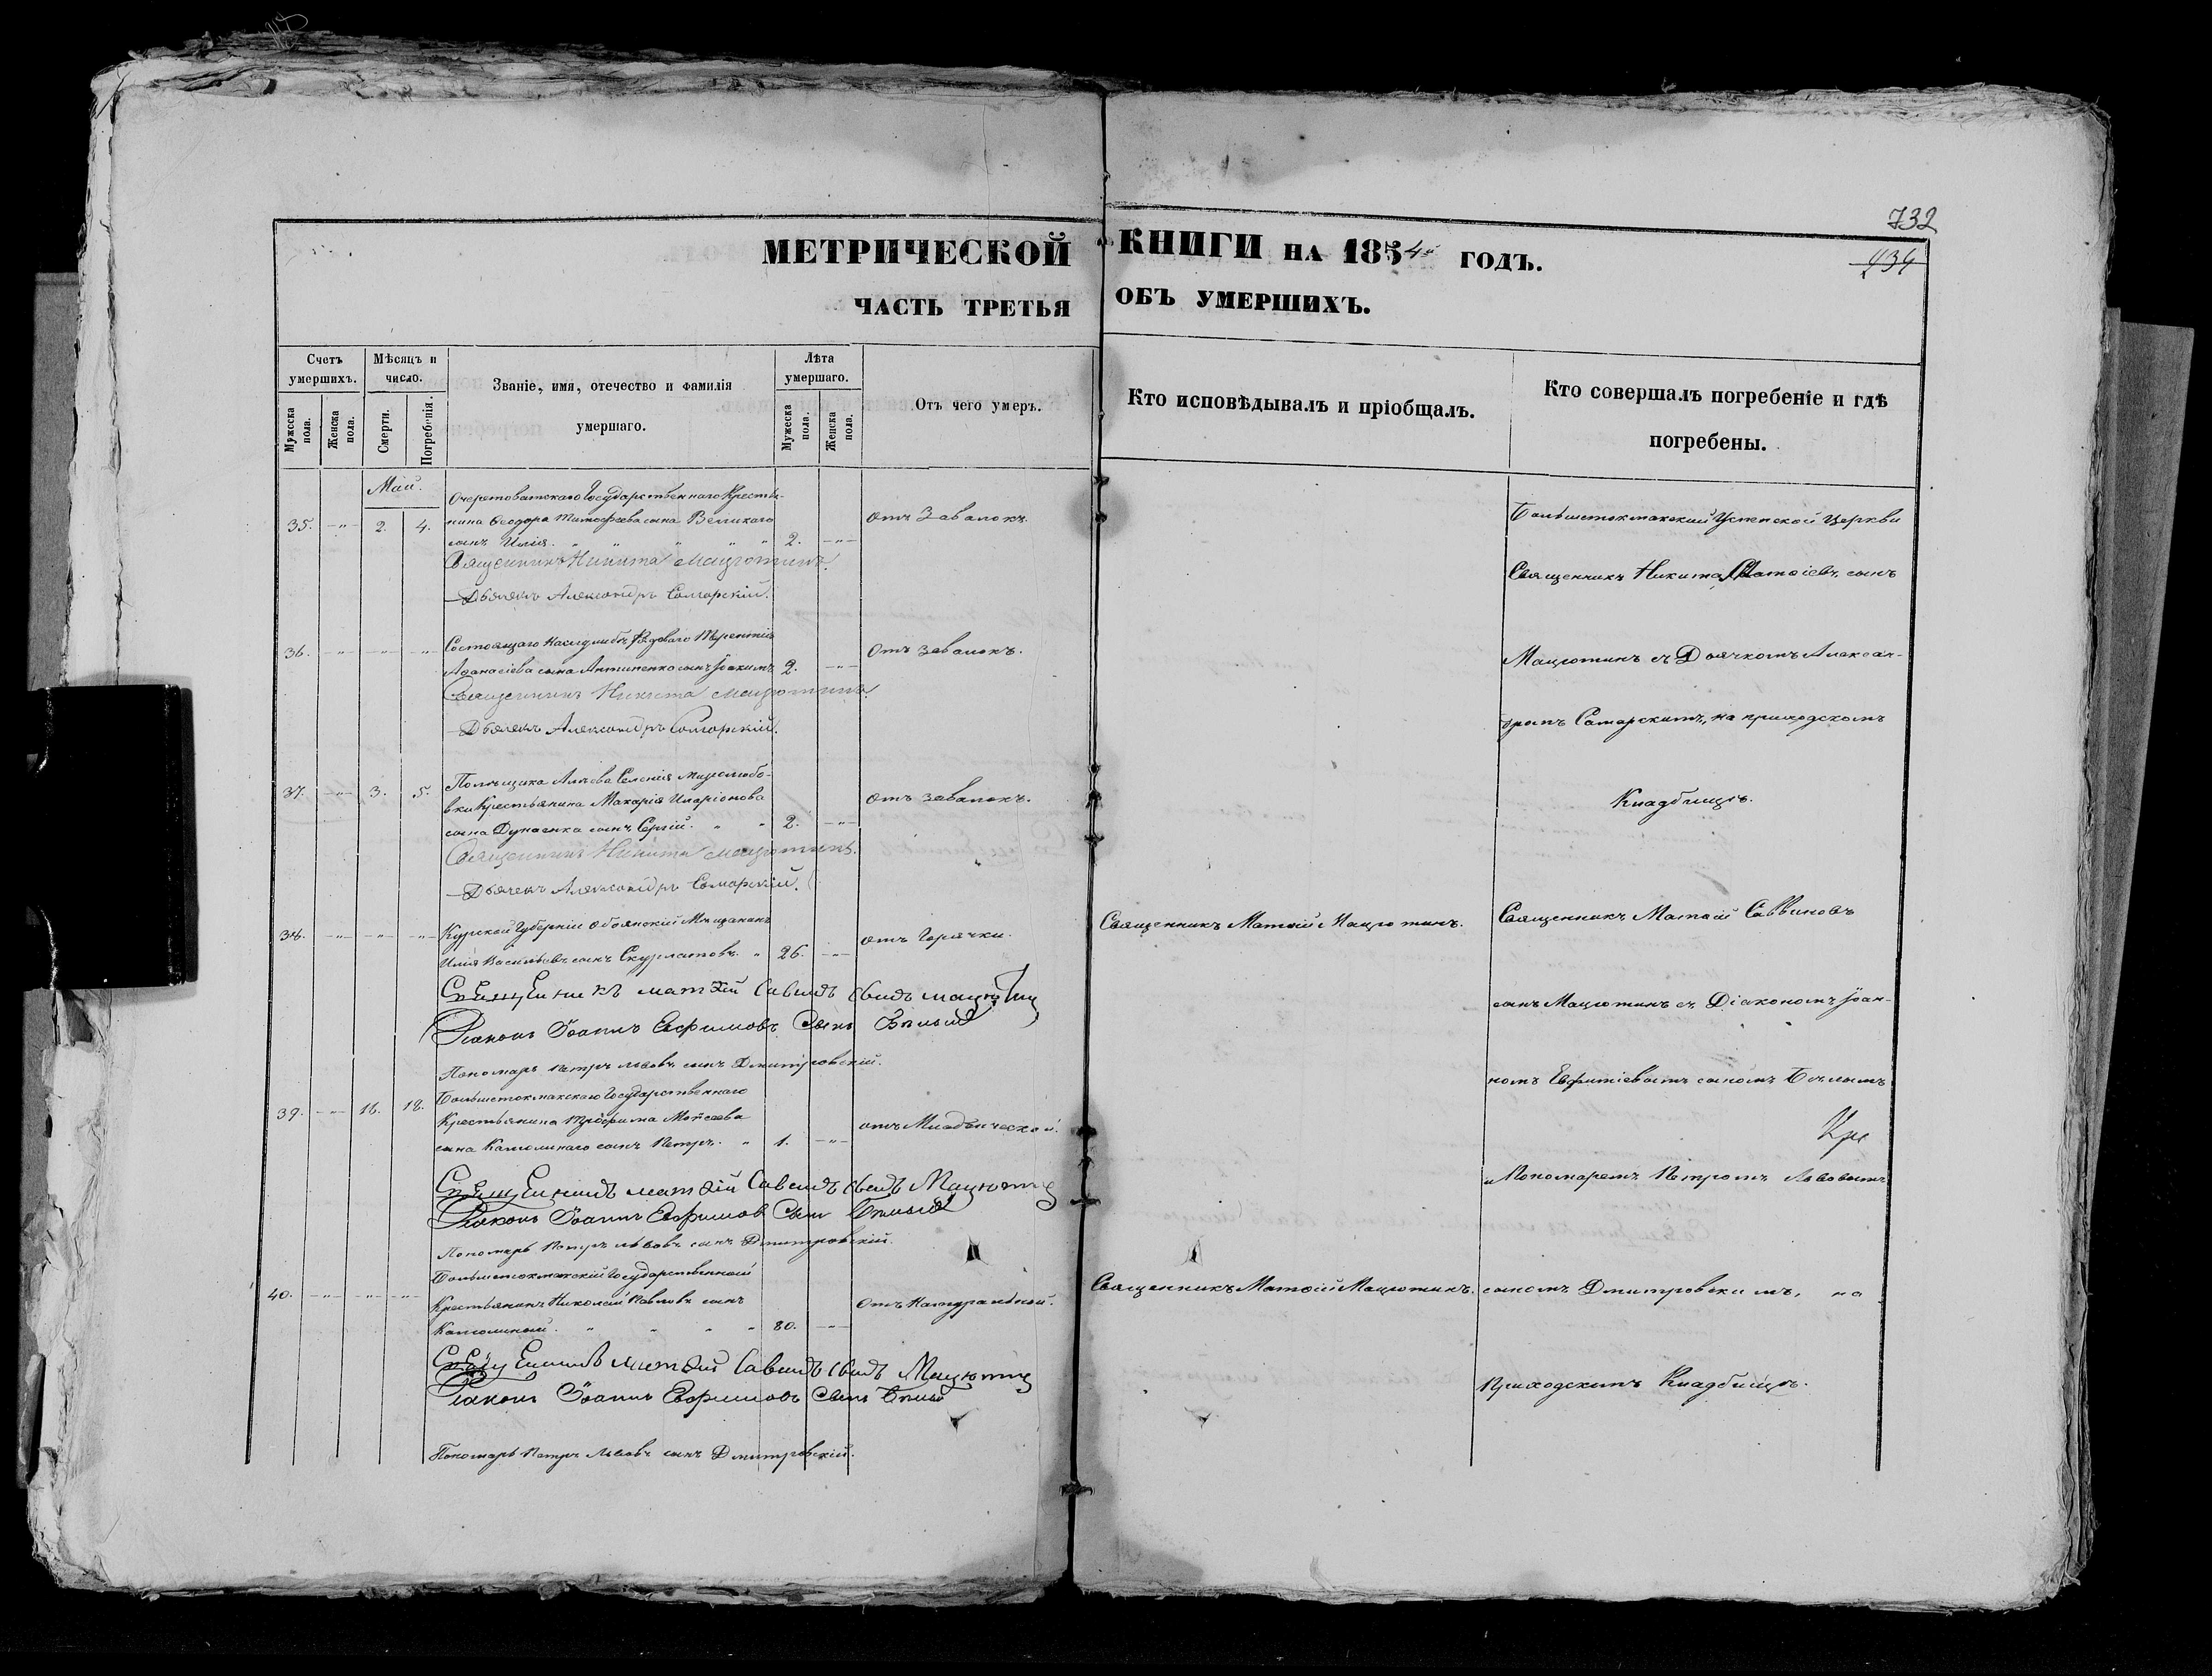 732
434
МЕТРИЧЕСКОЙ КНИГИ НА 1854й ГОДЪ.
ЧАСТЬ ТРЕТЬЯ ОБЪ УМЕРШИХЪ.
Счетъ умершихъ.
Мужеска пола.
Женска пола.
Мѣсяцъ и число.
Смерти.
Погребенія.
Званіе, имя, отечество и фамилія умершаго.
Лѣта умершаго.
Мужеска пола.
Женска пола.
Отъ чего умеръ.
Кто исповѣдывалъ и пріобщалъ.
Кто совершалъ погребеніе и гдѣ погребены.
Май.
Очеретоватскаго Государственнаго Крестья-
35. -"- 2. 4. нина Ѳеодора Тимоѳеева сына Великаго
сынъ Илія. " " " " " 2. -"- отъ Завалокъ.
Священникъ Никита Мацютинъ.
Дьячекъ Александръ Самарскій.
36. -"- -"- -"- Состоящаго Рядоваго Терентія
Аѳанасіева сына Антиненко сынъ Іоакимъ 2. -"- Отъ завалокъ.
Священникъ Никита Мацютинъ.
Дьячекъ Александръ Самарскій.
Помѣщика Селенія
37. -"- 3. 5. вки Крестьянина Макарія Иларіонова
сына Дунаенка сынъ Сергій. " " 2. -"- Отъ завалокъ.
Священникъ Никита Мацютинъ.
Дьячекъ Александръ Самарскій.
38. -"- -"- -"- Курской Губерніи Обоянскій Мѣщанинъ
Илія Васильевъ сынъ Скурлатовъ. " 26. -"- отъ Горячки.
Священникъ Матѳій Мацютинъ.
Священникъ Матѳій Савинъ Сынъ Мацютин
Діаконъ Іоаннъ Евфимовъ Сынъ Бѣлый
Пономарь Петръ Львовъ сынъ Дмитровскій.
Большетокмакскаго Государственнаго
39. -"- 16. 18. Крестьянина Трофима Моѵсеева
сына Камолинаго сынъ Петръ. " 1. -"- отъ Младенческой.
Священникъ Матѳій Савинъ Сынъ Мацютин
Діаконъ Іоаннъ Евфимов Сын Бѣлый
Пономарь Петръ Львовъ сынъ Дмитровскій.
Большетокмакскій Государственный
40. -"- -"- -"- Крестьянинъ Николай Павловъ сынъ
Камолиный. " " " " 80. -"- Отъ Натуральной.
Священникъ Матѳій Мацютинъ.
Священникъ Матѳій Савинъ Сынъ Мацютин
Діаконъ Іоаннъ Евфимовъ Сынъ Бѣлый
Пономарь Петръ Львовъ сынъ Дмитровскій.
Большетокмакской Успенской Церкви
Священникъ Никита Матѳіевъ сынъ
Мацютинъ съ Дьячкомъ Алексан-
дромъ Самарскимъ, на приходскомъ
Кладбищѣ.
Священникъ Матѳій Саввиновъ
сынъ Мацютинъ съ Діакономъ Іоан-
номъ Евфиміевымъ сыномъ Бѣлымъ
и Пономаремъ Петромъ Львовымъ
сыномъ Дмитровскимъ, на
Приходскомъ Кладбищѣ.